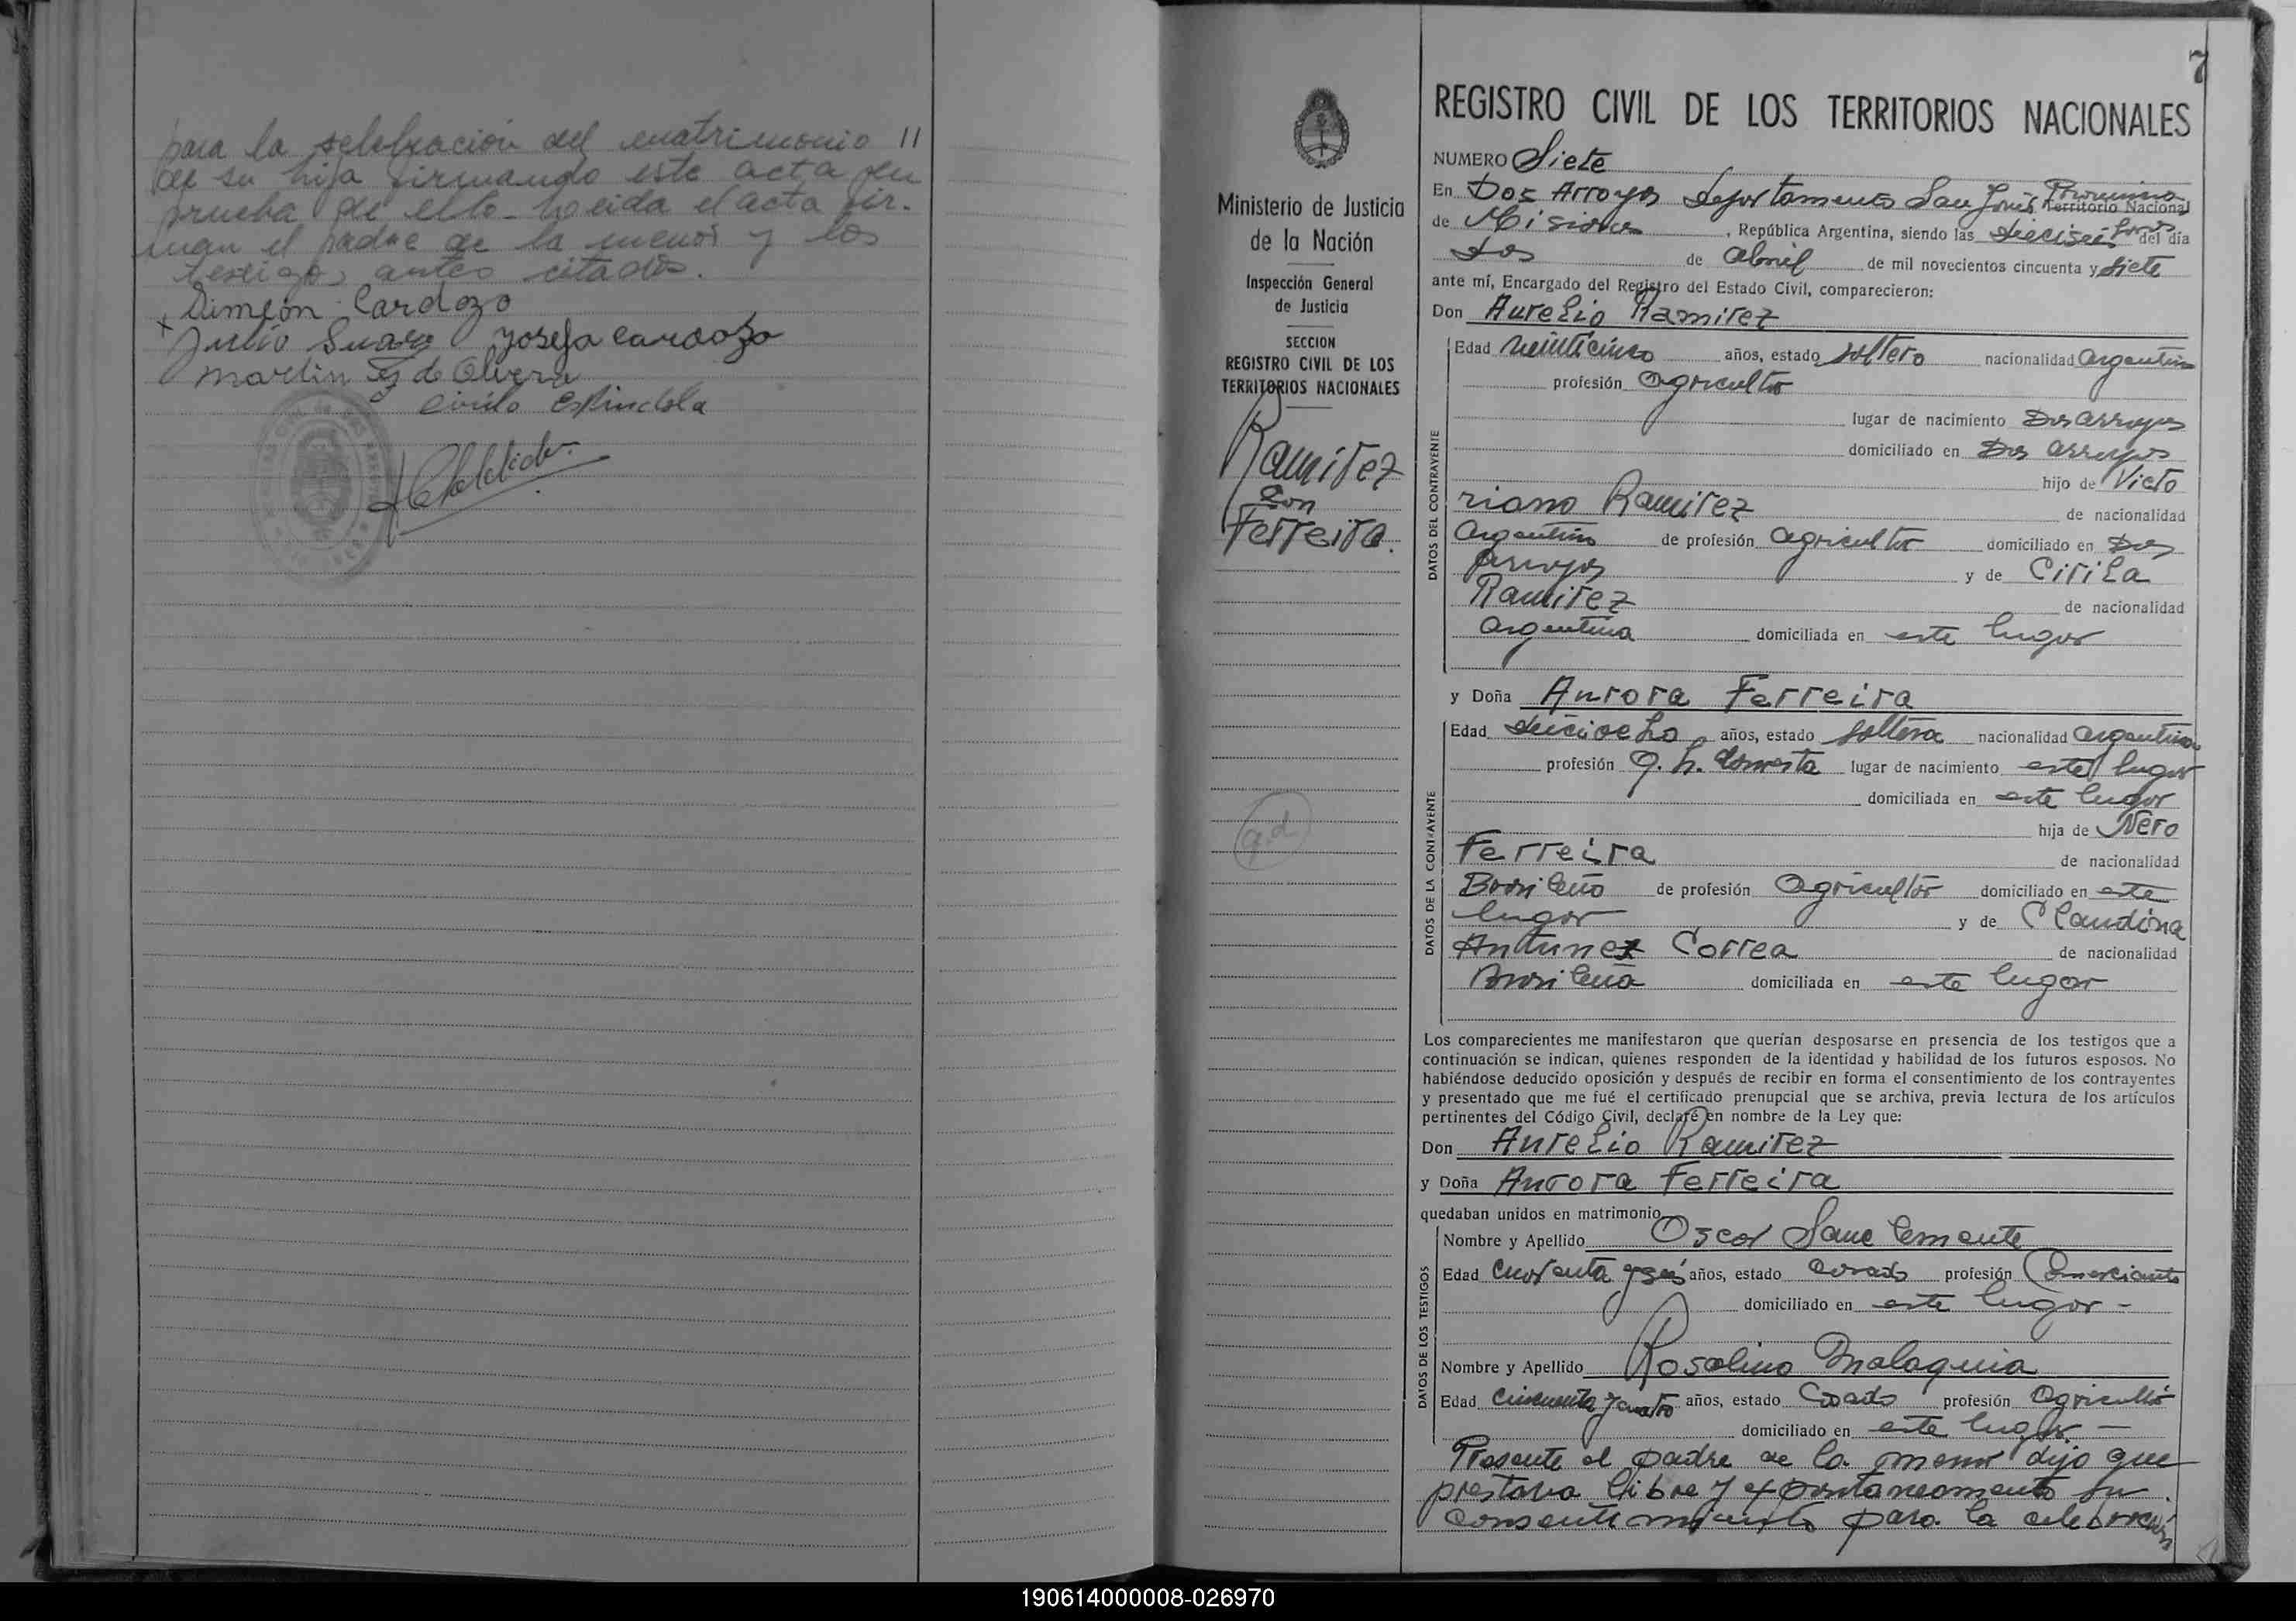 para la selebración del matrimonio 11
de su hija firmando este acta en
prueba de ello - leeida el acta fir-
man el padre de la menor y los
testigos antes citados.
Simeón Cardozo
x Julio Suarez Josefa Cardozo
Martin Fz de Olivera
Cirilo Espindola
7
REGISTRO CIVIL DE LOS TERRITORIOS NACIONALES
NUMERO Siete
En Dos Arroyos departamento San Javier Provincia Territorio Nacional
de Misiones, República Argentina, siendo las dieciseis horas del día
dos de Abril de mil novecientos cincuenta y siete
ante mí, Encargado del Registro del Estado Civil, comparecieron:
Don Aurelio Ramirez
Edad veinticinco años, estado soltero nacionalidad argentina
profesión agricultor
lugar de nacimiento Dos arroyos
domiciliado en Dos arroyos
hijo de Victo
riano Ramirez de nacionalidad
argentino de profesión agricultor domiciliado en Dos
arroyos y de Cirila
Ramirez de nacionalidad
argentina domiciliada en este lugar
y Doña Aurora Ferreira
Edad dieciocho años, estado soltera nacionalidad argentina
profesión q. h. domesta lugar de nacimiento este lugar
domiciliada en este lugar
hija de Nero
Ferreira de nacionalidad
Brasileño de profesión agricultor domiciliado en este
lugar y de Claudina
Antunez Correa de nacionalidad
Brasileña domiciliada en este lugar
Los comparecientes me manifestaron que querían desposarse en presencia de los testigos que a
continuación se indican, quienes responden de la identidad y habilidad de los futuros esposos. No
habiéndose deducido oposición y después de recibir en forma el consentimiento de los contrayentes
y presentado que me fué el certificado prenupcial que se archiva, previa lectura de los artículos
pertinentes del Código Civil, declaré en nombre de la Ley que:
Don Aurelio Ramirez
y Doña Aurora Ferreira
quedaban unidos en matrimonio
Nombre y Apellido Oscar Sanclemente
Edad cuarenta y seis años, estado casado profesión Comerciante
domiciliado en este lugar -
Nombre y Apellido Rosalino Malaquia
Edad cincuenta y cuatro años, estado Casado profesión agricultor
domiciliado en este lugar. -
Presente el padre de la menor dijo que
prestava libre y expontaneamente su
consentimiento para la celebración
Ministerio de Justicia
de la Nación
Inspección General
de Justicia
SECCION
REGISTRO CIVIL DE LOS
TERRITORIOS NACIONALES
Ramirez
con
Ferreira.
DATOS DEL CONTRAYENTE
DATOS DE LA CONTRAYENTE
DATOS DE LOS TESTIGOS
190614000008-026970